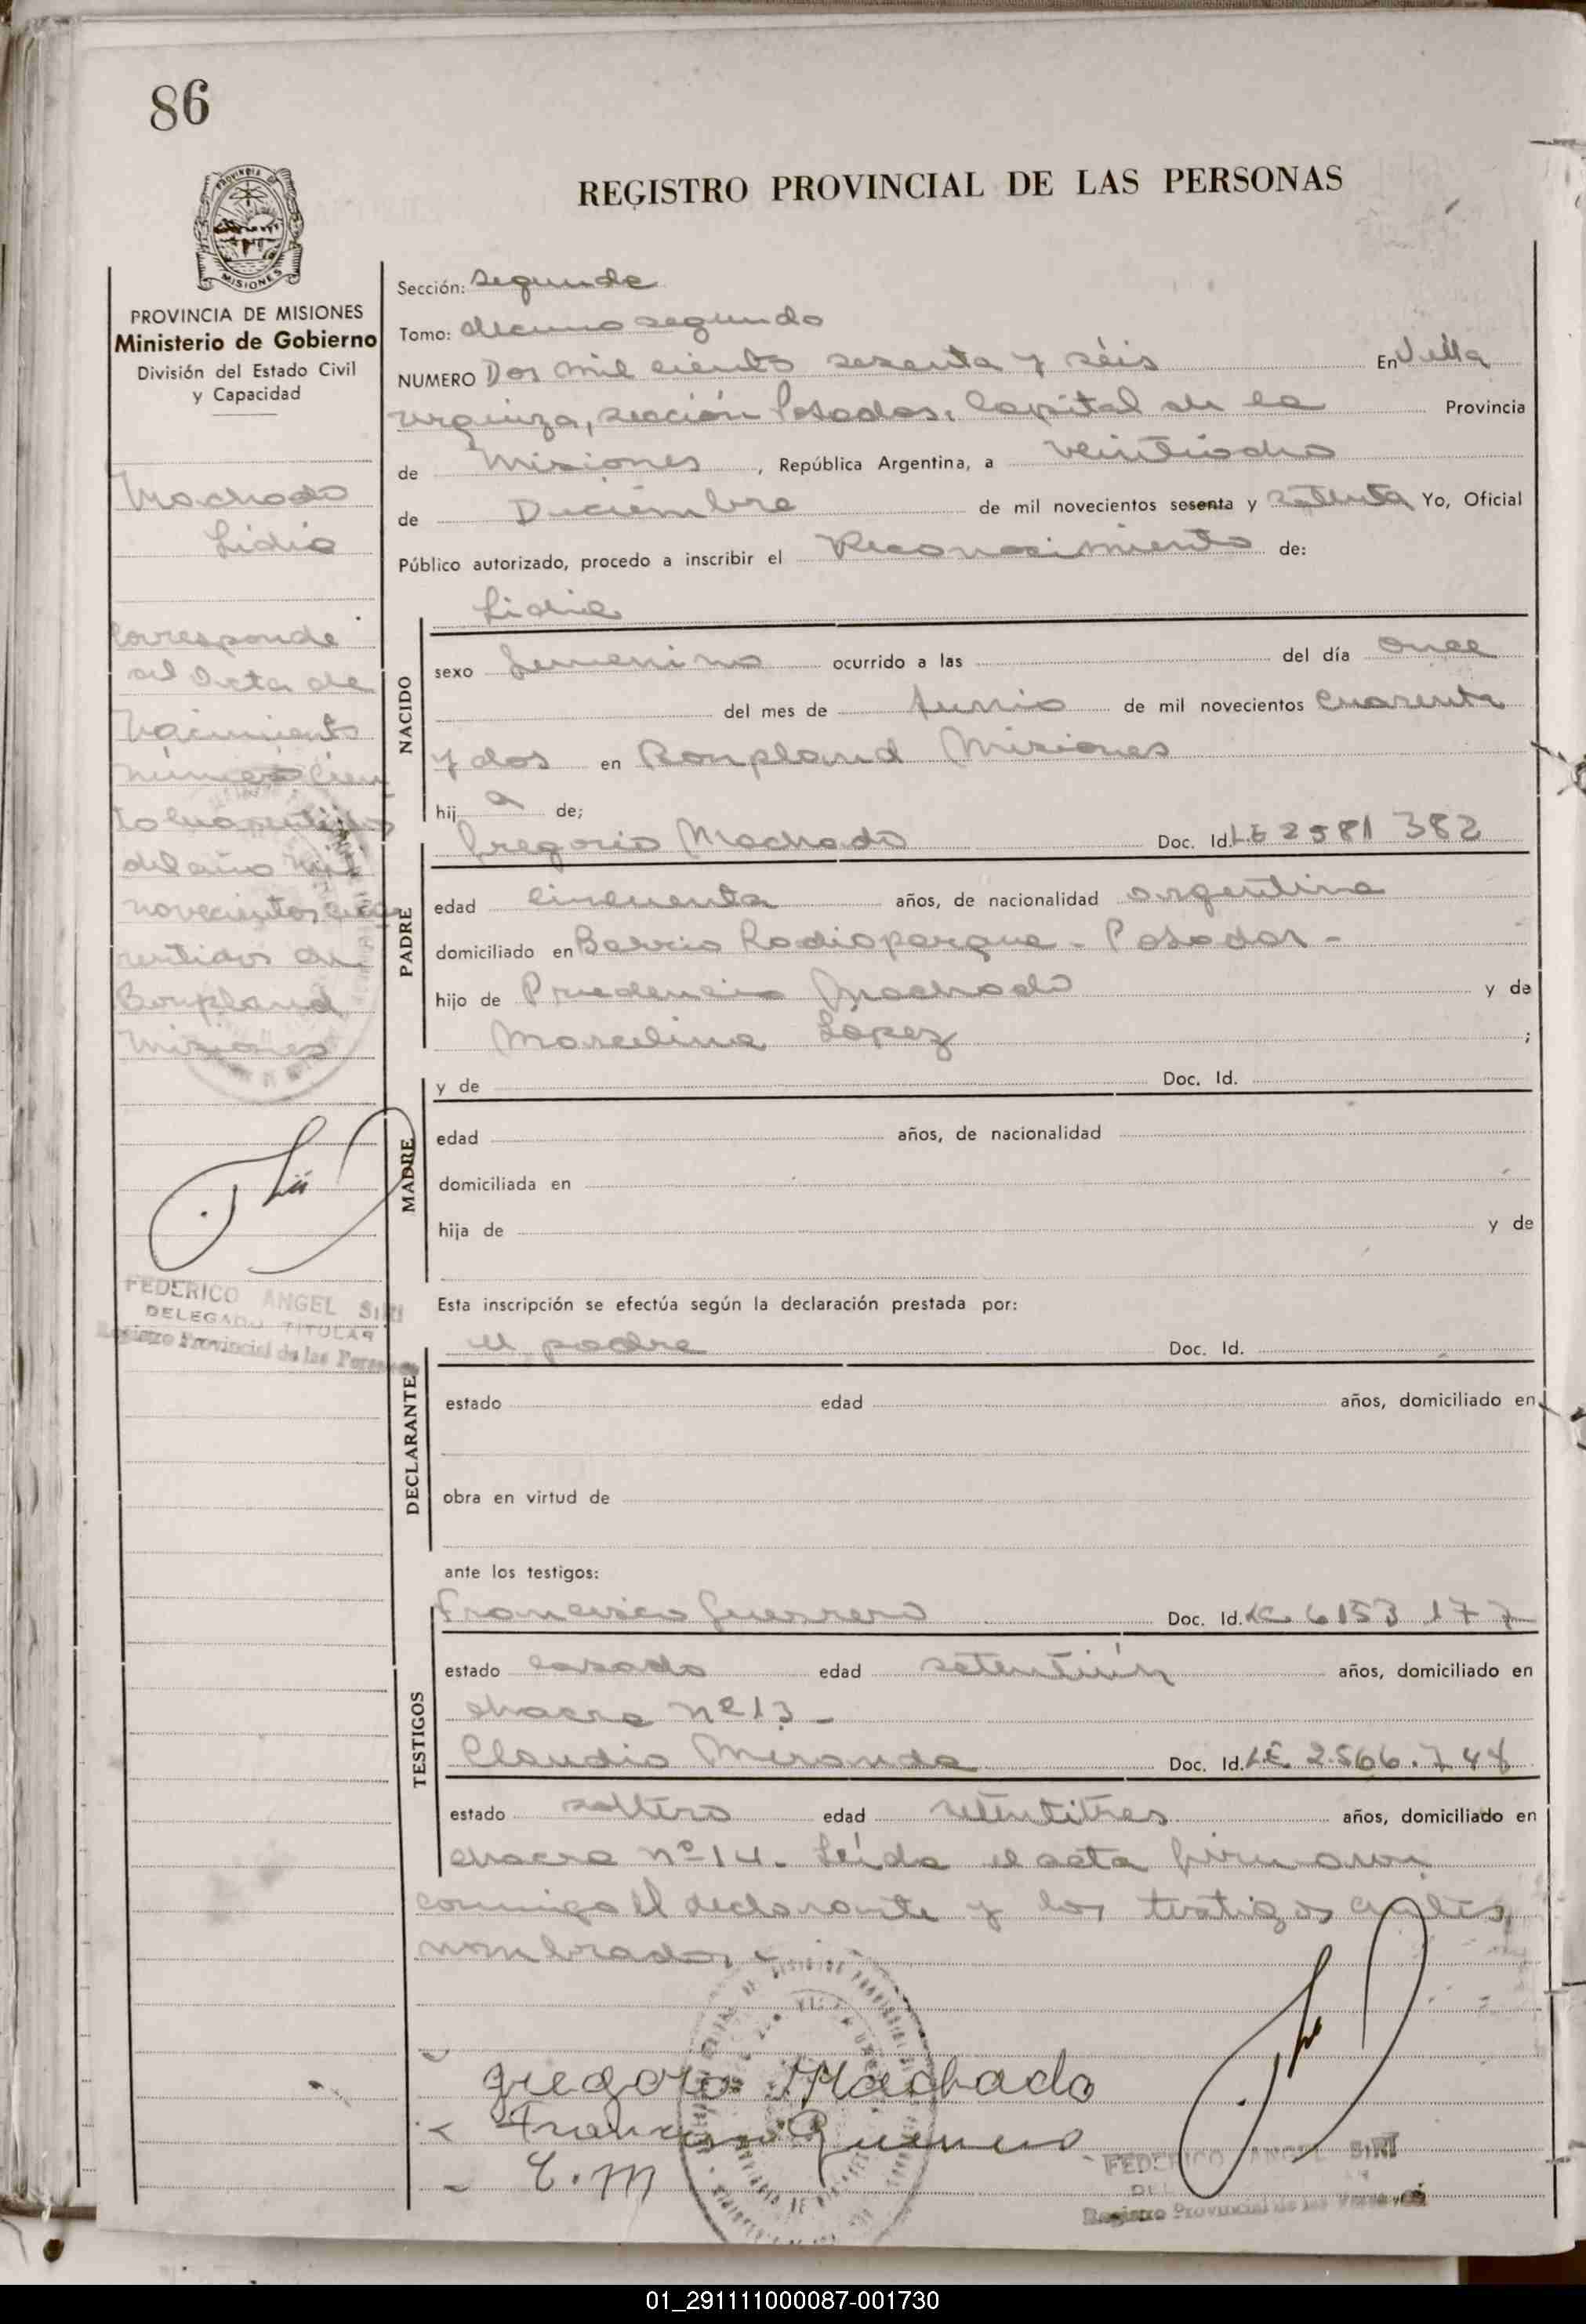 86
REGISTRO PROVINCIAL DE LAS PERSONAS
PROVINCIA
MISIONES
PROVINCIA DE MISIONES
Ministerio de Gobierno
División del Estado Civil
y Capacidad
Machado
Lidia
Corresponde
al Acta de
Nacimiento
número cien
to cuarentidos
del año mil
novecientos cua
rentidos de
Bonpland
Misiones
FEDERICO ANGEL SIRI
DELEGADO TITULAR
Registro Provincial de las Personas
Sección: Segunda
Tomo: decimo segundo
NUMERO Dos mil ciento sesenta y séis En Villa
Urquiza, sección Posadas, Capital de la Provincia
de Misiones, República Argentina, a veintiocho
de Diciembre de mil novecientos sesenta y setenta Yo, Oficial
Público autorizado, procedo a inscribir el Reconocimiento de:
Lidia
NACIDO
sexo femenino ocurrido a las del día once
del mes de Junio de mil novecientos cuarenta
y dos en Bonpland Misiones
hij a de;
PADRE
Gregorio Machado Doc. Id. LE 2581 382
edad cincuenta años, de nacionalidad argentina
domiciliado en Barrio Radioparque - Posadas -
hijo de Prudencio Machado y de
Marcelina López ;
MADRE
y de Doc. Id.
edad años, de nacionalidad
domiciliada en
hija de y de
Esta inscripción se efectúa según la declaración prestada por:
DECLARANTE
el padre Doc. Id.
estado edad años, domiciliado en
obra en virtud de
ante los testigos:
TESTIGOS
Francisco Guerrero Doc. Id. 6153 177
estado casado edad setentiún años, domiciliado en
chacra nº 13 -
Claudio Miranda Doc. Id. LE 2.566.748
estado soltero edad setentitres años, domiciliado en
chacra nº 14. Leída el acta firmaron
conmigo el declarante y los testigos antes
nombrados
Gregorio Machado
Francisco Guerrero
C. M
FEDERICO ANGEL SIRI
Registro Provincial de las Personas
01_291111000087-001730